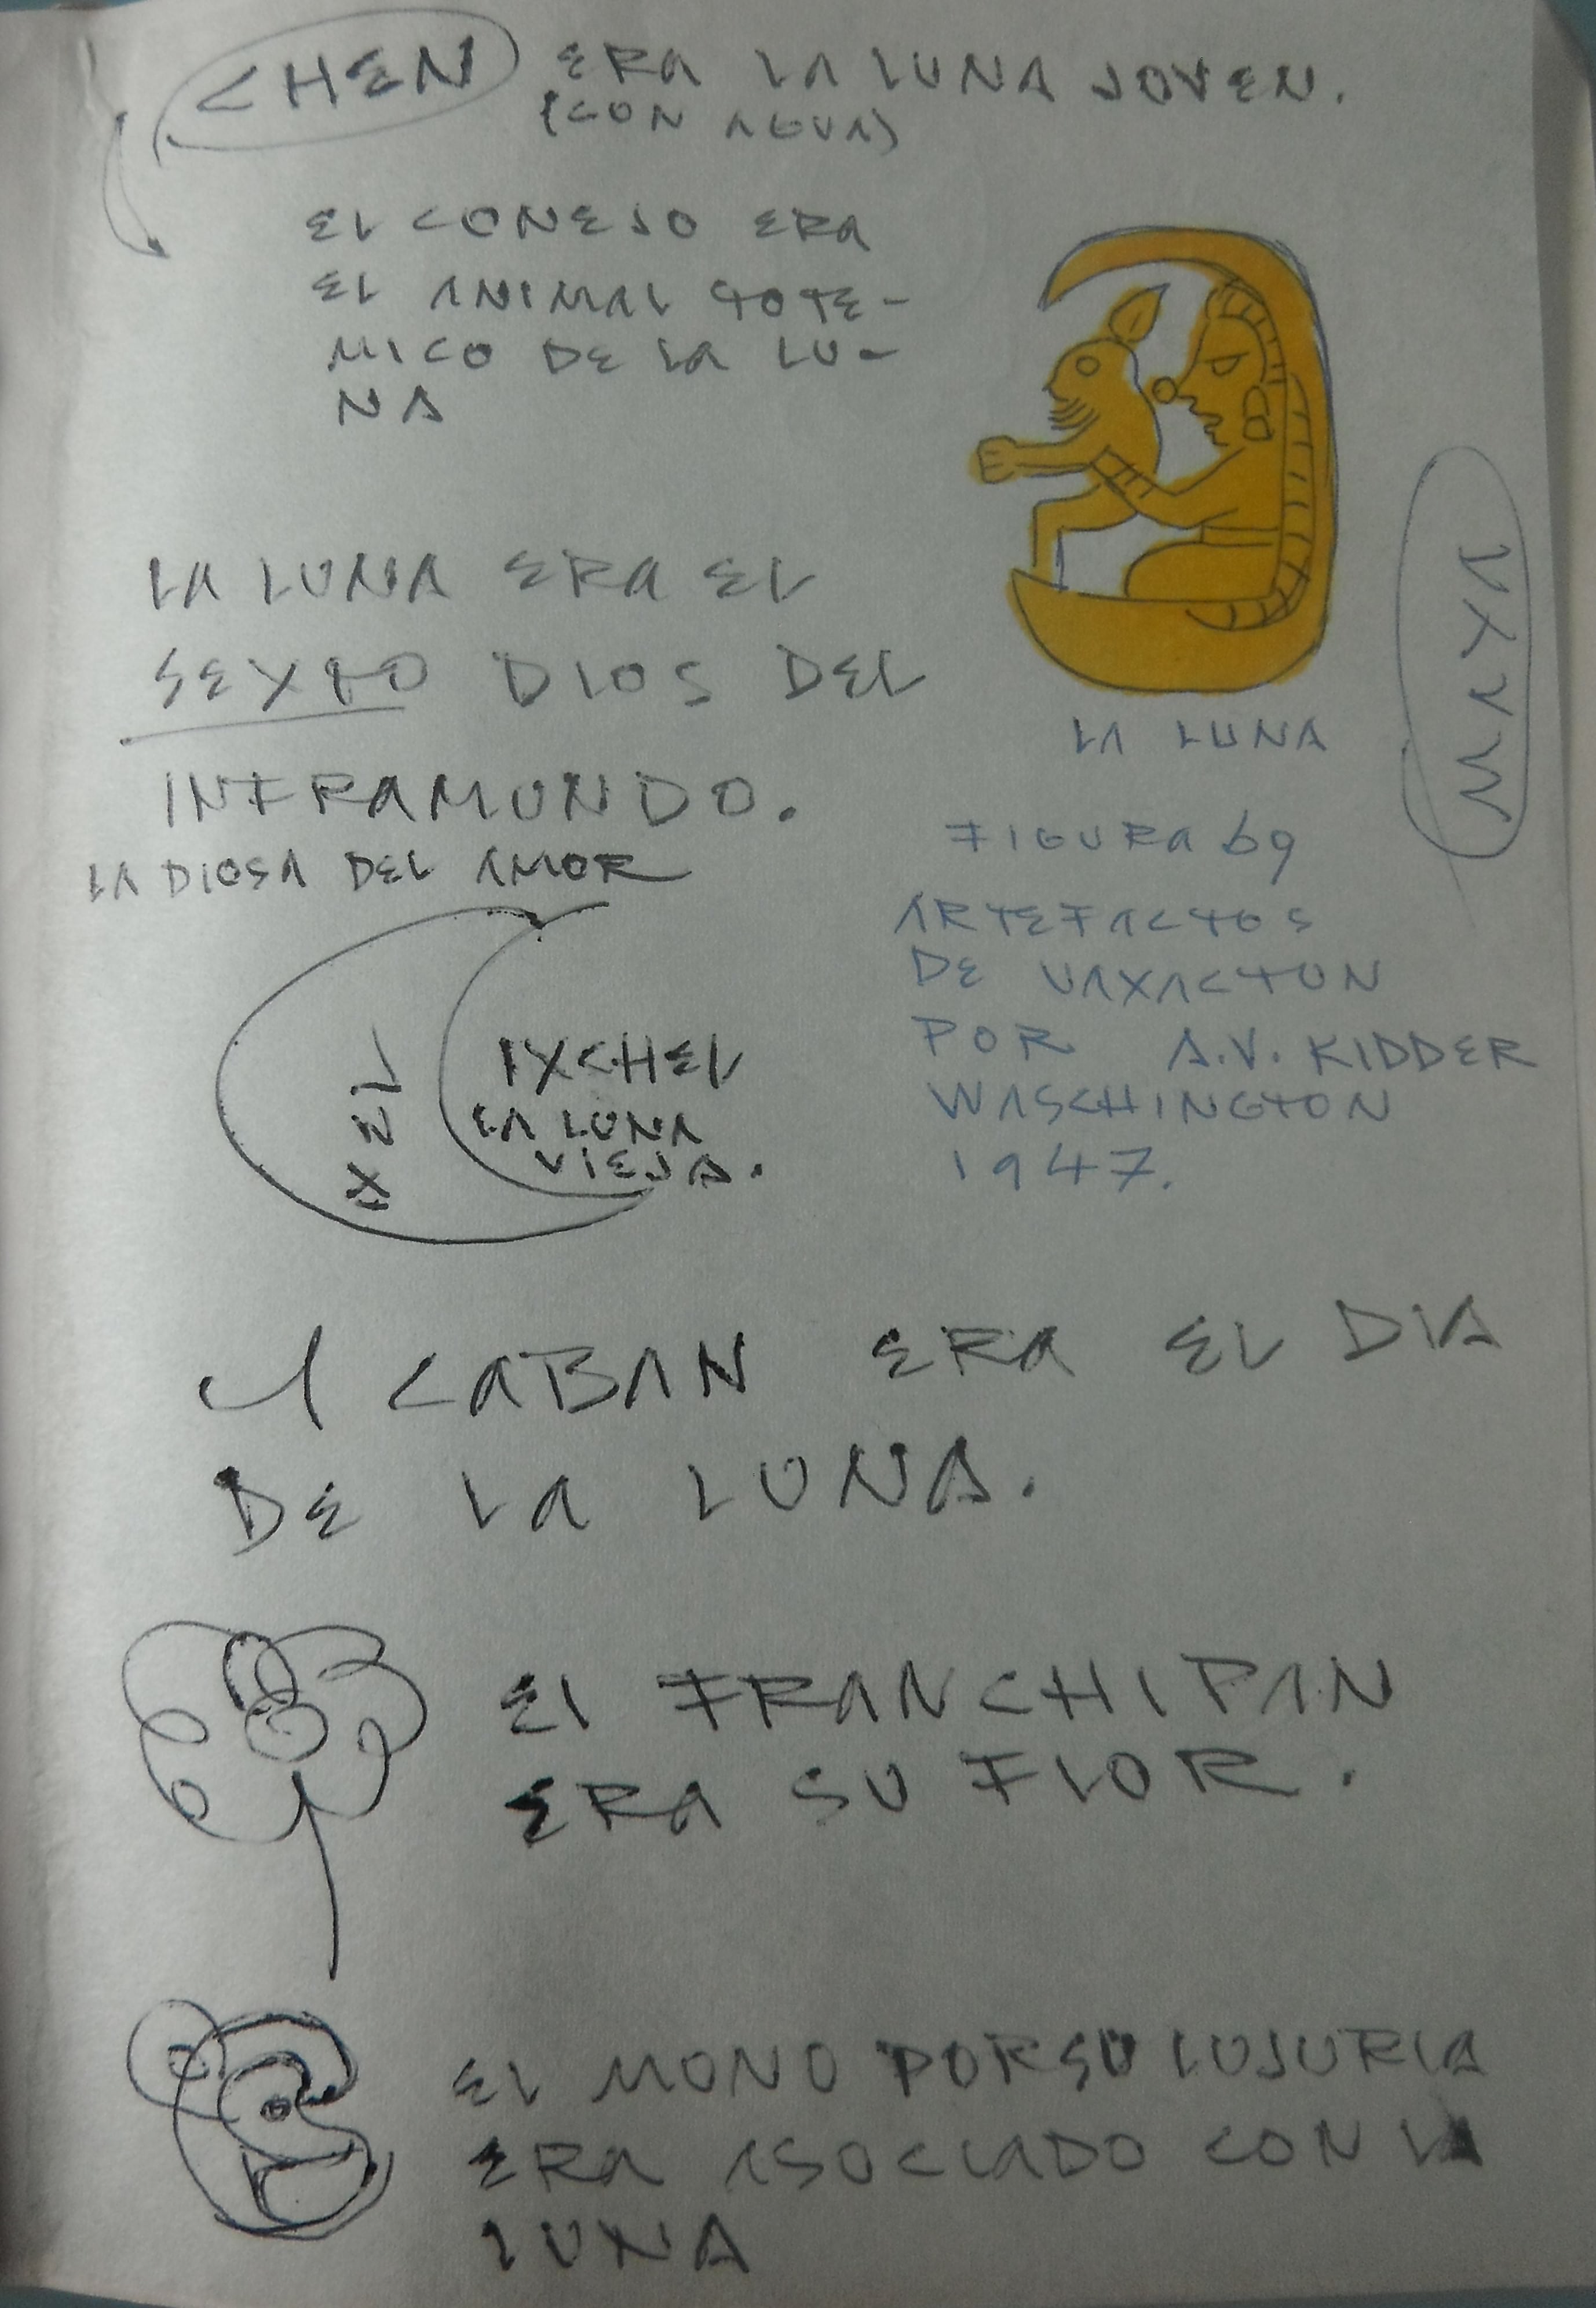 CHEN ERA LA LUNA JOVEN.
(CON AGUA)
EL CONEJO ERA
EL ANIMAL TOTE-
MICO DE LA LU-
NA
LA LUNA ERA EL
SEXTO DIOS DEL
INFRAMUNDO.
LA LUNA
MAYA
FIGURA 69
ARTEFACTOS
DE UAXACTUN
POR A.V. KIDDER
WASCHINGTON
1947.
LA DIOSA DEL AMOR
IXCHEL
LA LUNA
VIEJA.
1 CABAN ERA EL DIA
DE LA LUNA.
EL FRANCHIPAN
ERA SU FLOR.
EL MONO POR SU LUJURIA
ERA ASOCIADO CON LA
LUNA